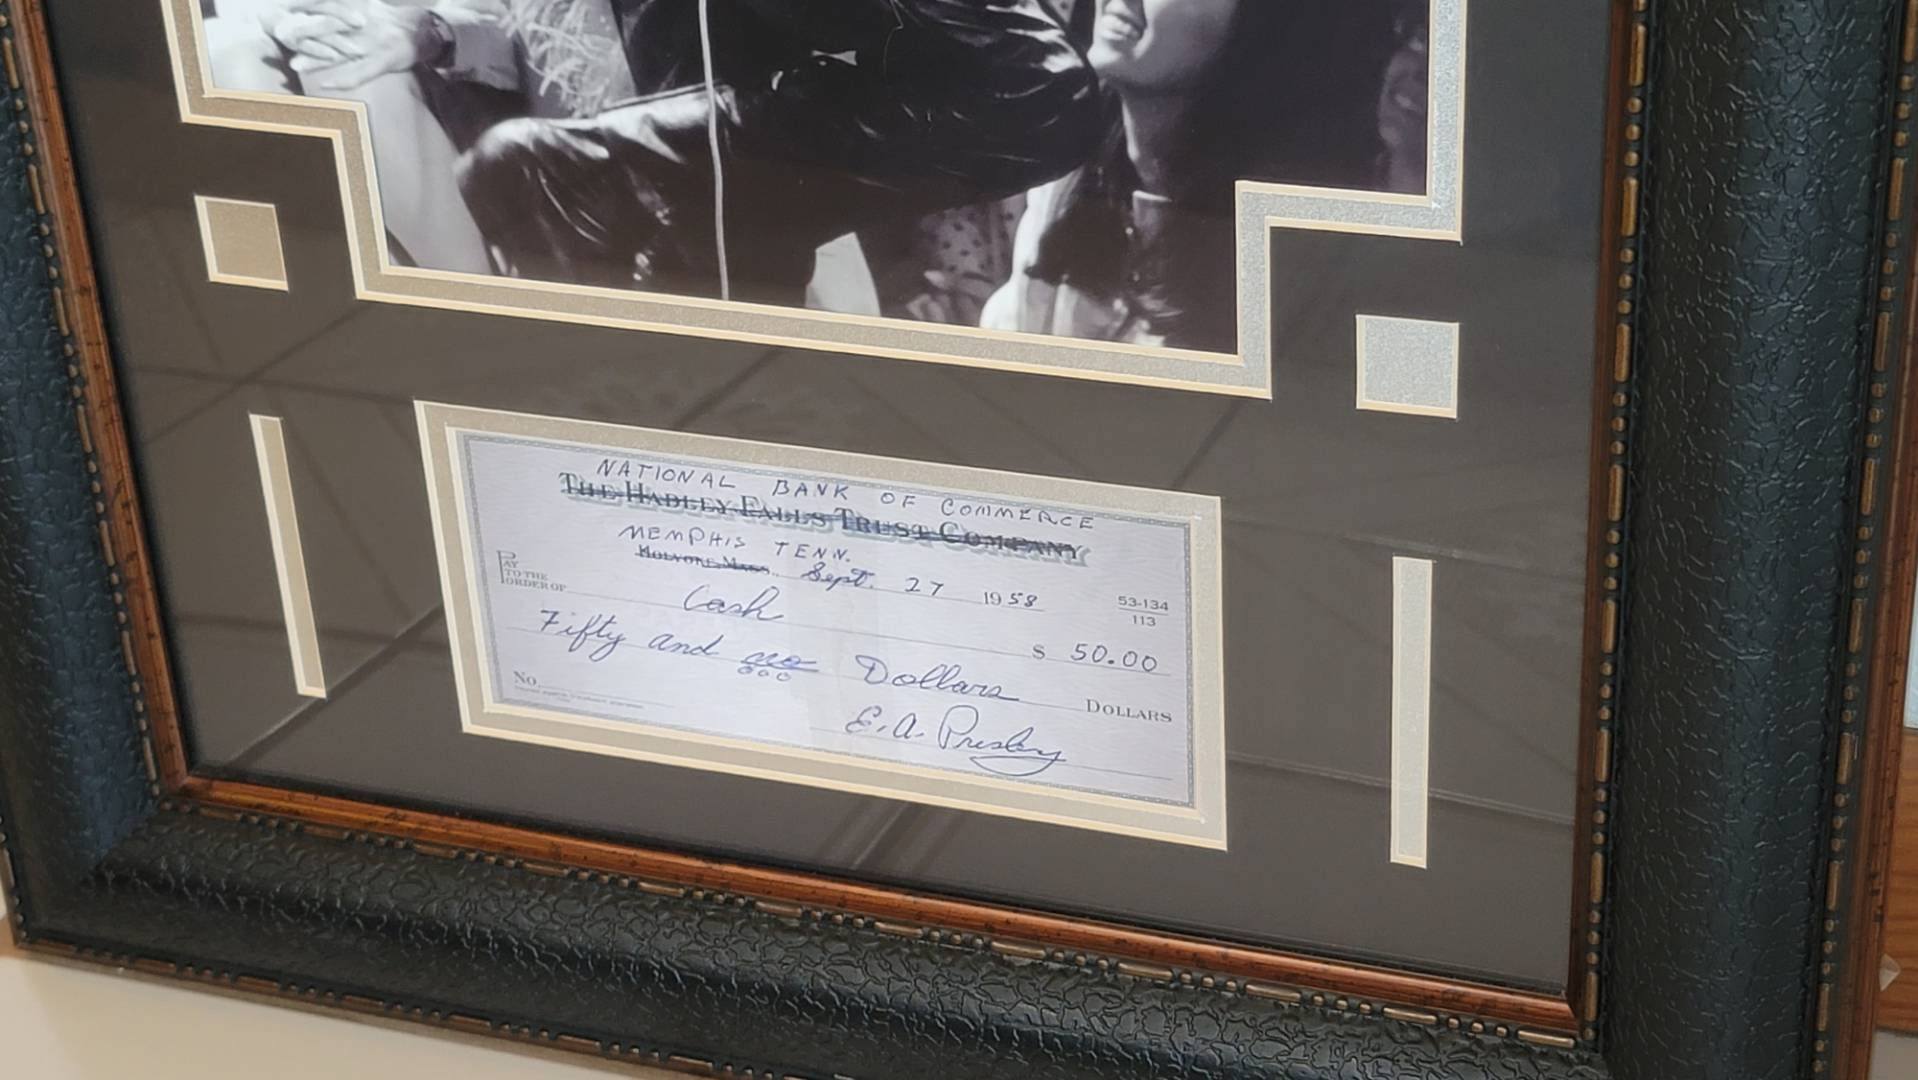 NATIONAL BANK OF COMMERCE
THE HADLEY FALLS TRUST COMPANY
MEMPHIS TENN.
HOLYOKE, MASS., Sept. 27 1958
53-134
113
PAY TO THE ORDER OF Cash $ 50.00
Fifty and no Dollars DOLLARS
000
No.
E. A. Presley